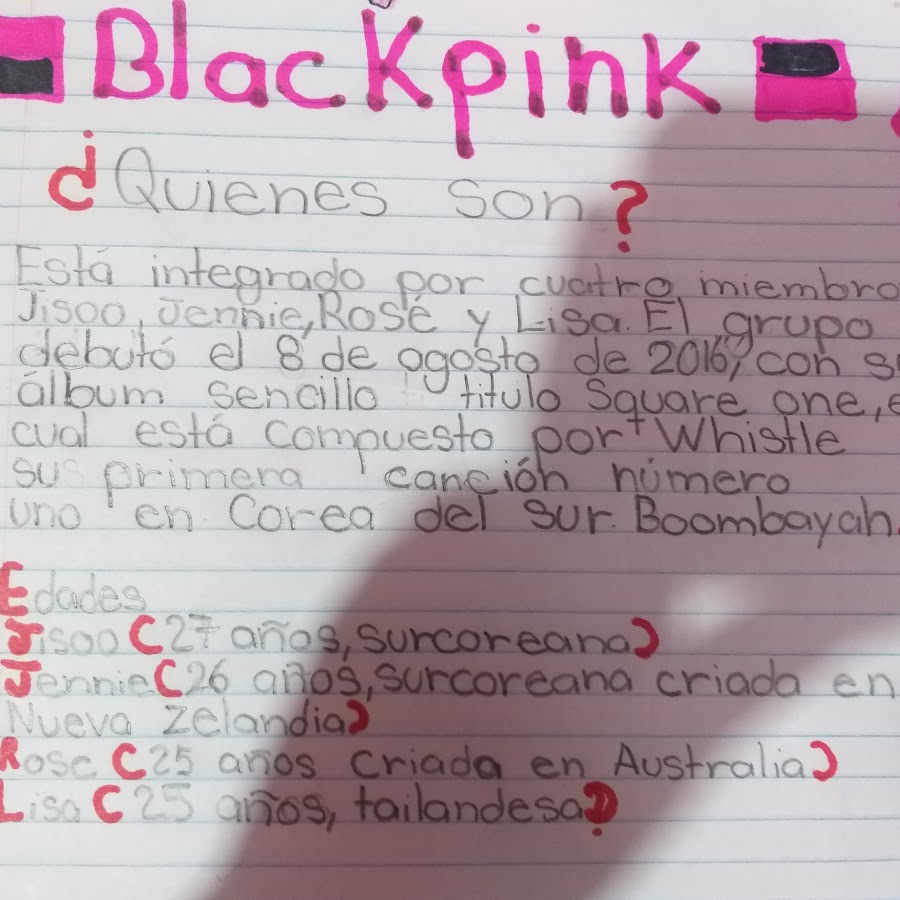 Blackpink
¿Quienes son?
Está integrado por cuatro miembro
Jisoo, Jennie, Rosé y Lisa. El grupo
debutó el 8 de agosto de 2016, con s
álbum sencillo titulo Square one, e
cual está compuesto por Whistle
su primera canción número
uno en Corea del Sur. Boombayah.
Edades
Jisoo (27 años, surcoreana)
Jennie (26 años, surcoreana criada en
Nueva Zelandia)
Rose (25 años criada en Australia)
Lisa (25 años, tailandesa)